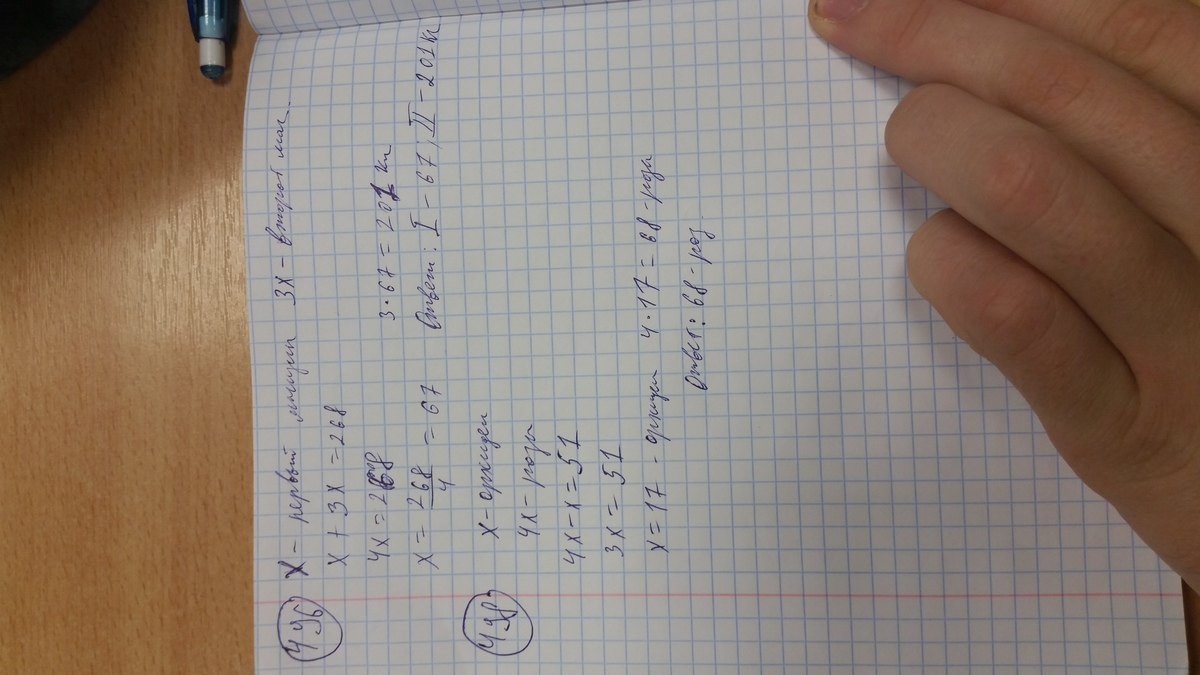 496
x – первый 3x – второй маг
x + 3x = 268
4x = 268
3 · 67 = 201 кг
x = 268/4 = 67
Ответ: I – 67; II – 201 кг
498
x – орхидеи
4x – розы
4x – x = 51
3x = 51
x = 17 – орхидеи 4 · 17 = 68 – розы
Ответ: 68 – роз